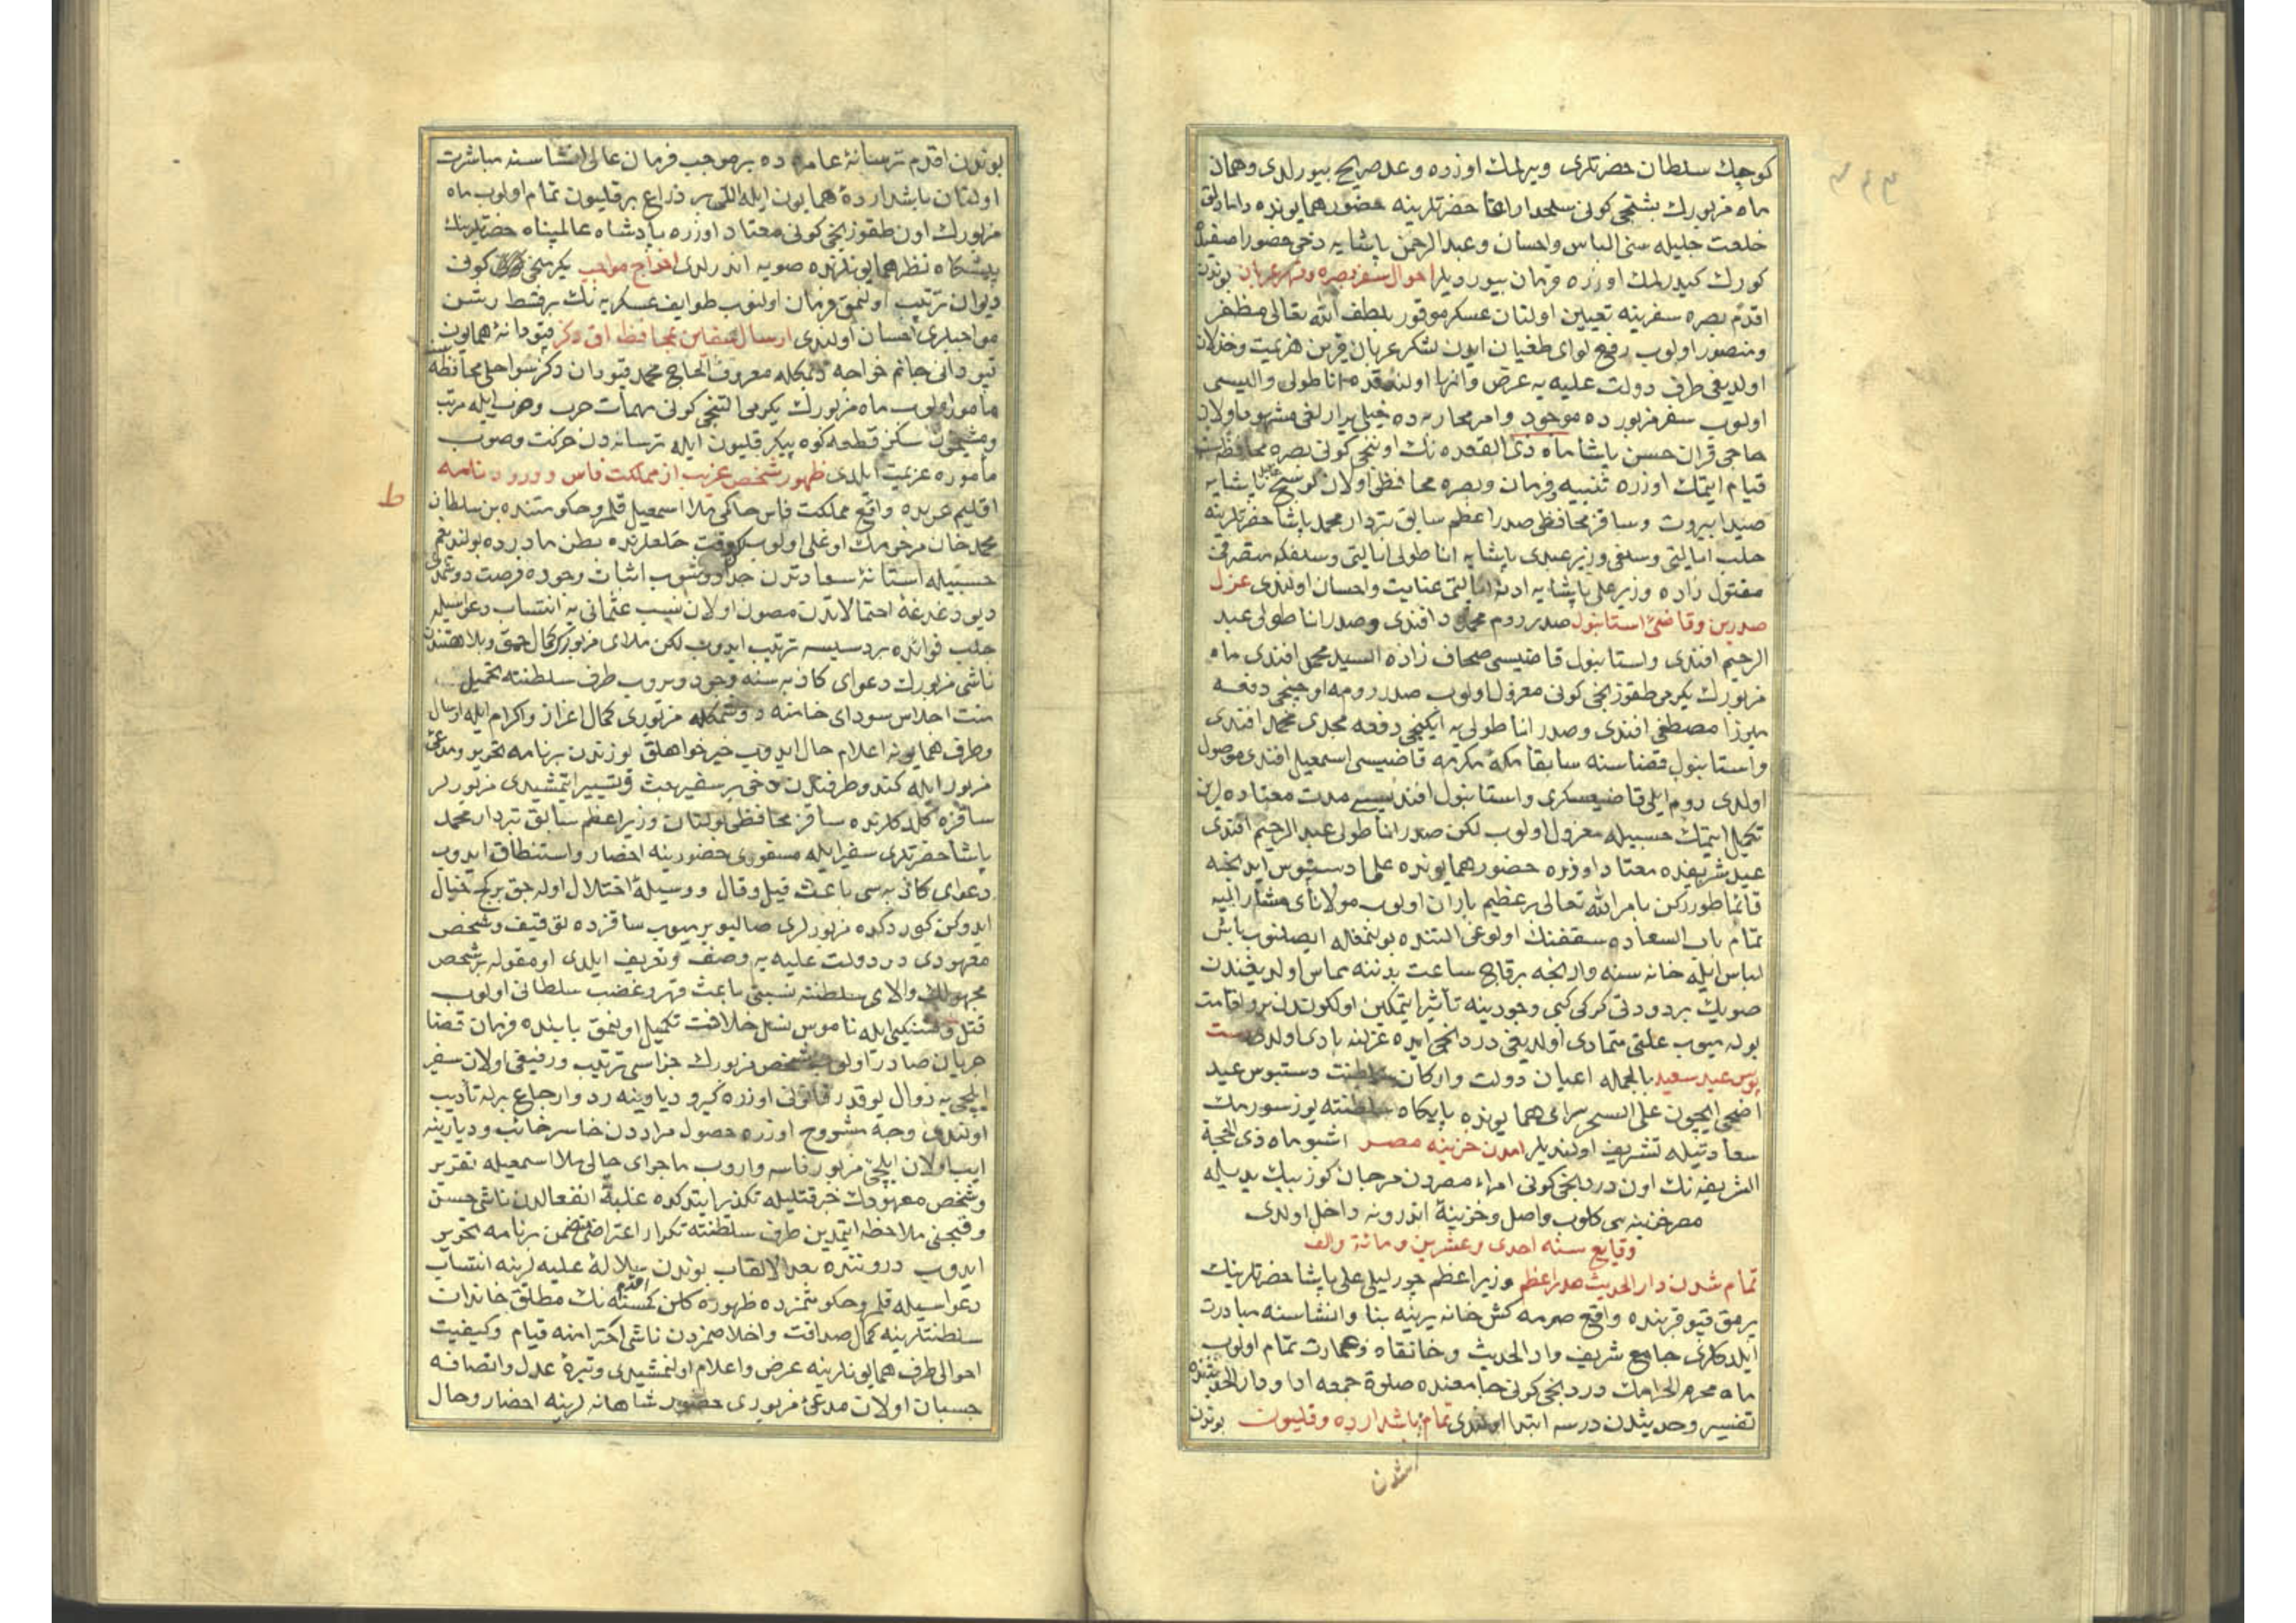 كوچك سلطان حضرتلری ویرلمك اوزره وعد صریح بیورلدی وهمان
ماه مزبورك بشنجی كونی سلحدار اغا حضرتلرینه حضور همایونده دامادلق
خلعت جلیله سنی الباس واحسان وعبد الرحمن پاشایه دخی حضور اصفیده
كورك كیدرلمك اوزره فرمان بیوردیلر احوال سفر بصره وقهر عربان بوندن
اقدم بصره سفرینه تعیین اولنان عسكر موفور بلطف الله تعالی مظفر
ومنصور اولوب رفع لوای طغیان ایدن لشكر عربان قرین هزیمت وخذلان
اولدیغی طرف دولت علیه یه عرض وانها اولندقده اناطولی والیسی
اولوب سفر مزبورده موجود وامر محاربه ده خیلی یرارلغی مشهود اولان
حاجی قران حسن پاشا ماه ذی القعده نك اوننجی كونی بصره محافظه سنه
قیام ایتمك اوزره تنبیه وفرمان وبصره محافظی اولان كوسج خلیل پاشایه
صیدا بیروت وساقز محافظی صدر اعظم سابق بتردار محمد پاشا حضرتلرینه
حلب ایالتی وسلفی وزیر عبدی پاشایه اناطولی ایالتی وسلفكه متصرفی
مقتول زاده وزیر علی پاشایه ادنه ایالتی عنایت واحسان اولندی عزل
صدرین وقاضئ استانبول صدر روم محمود افندی وصدر اناطولی عبد
الرحیم افندی واستانبول قاضیسی صحاف زاده السید محمد افندی ماه
مزبورك یكرمی طقوزنجی كونی معزول اولوب صدر رومه اوچنجی دفعه
میرزا مصطفی افندی وصدر اناطولی یه ایكنجی دفعه مجدی محمد افندی
واستانبول قضاسنه سابقا مكه مكرمه قاضیسی اسمعیل افندی موصول
اولدی روم ایلی قاضیعسكری واستانبول افندیسی مدت معتاده لرین
تكمیل ایتمك حسبیله معزول اولوب لكن صدر اناطولی عبد الرحیم افندی
عید شریفده معتاد اوزره حضور همایونده علما دستبوس ایدنجه
قائما طورركن بامر الله تعالی بر عظیم باران اولوب مولانای مشار الیه
تمام باب السعاده سقفنك اولوغی التنده بولنمغله ایصلنوب یاش
لباس ایله خانه سنه وارنجه برقاچ ساعت بدننه مماس اولدیغندن
صویك برودتی كركی كبی وجودینه تأثیر ایتمكین اولكوندن برو افاقت
بولمیوب علتی متمادی اولدیغی دردنجی ایده عزلنه بادی اولدی دست
بوس عید سعید بالجمله اعیان دولت واركان سلطنت دستبوس عید
اضحی ایچون علی السحر سرای همایونده پایكاه سلطنته یوز سورمك
سعادتیله تشریف اولندیلر امدن خزینه مصر اشبو ماه ذی الحجة
الشریفه نك اون دردنجی كونی امراء مصردن مرجان كوز بیك یدیله
مصر خزینه سی كلوب واصل وخزینۀ اندرونه داخل اولدی
وقایع سنه احدی وعشرین ومائة والف
تمام شدن دار الحدیث صدر اعظم وزیر اعظم چورلیلی علی پاشا حضرتلرینك
پرمق قپو قربنده واقع صرمه كش خانه یرینه بنا وانشاسنه مبادرت
ایلدكلری جامع شریف ودار الحدیث وخانقاه وعمارت تمام اولوب
ماه محرم الحرامك دردنجی كونی جامعنده صلوة جمعه ادا ودار الحدیثنده
تفسیر وحدیثدن درسه ابتدا اولندی تمام باشدارده وقلیون بوندن
شدن
بوندن اقدم ترسانۀ عامره ده بر موجب فرمان عالی انشاسنه مباشرت
اولنان باشدارده همایون ایله اللی بر ذراع بر قلیون تمام اولوب ماه
مزبورك اون طقوزنجی كونی معتاد اوزره پادشاه عالمپناه حضرتلرینك
پیشكاه نظر همایونلرنده صویه اندرلدی اخراج مواجب یكرمنجی كونی
دیوان ترتیب اولنمق فرمان اولنوب طوایف عسكریه نك بر قسط رشن
مواجبلری احسان اولندی ارسال قلیون بمحافظه اق دكز قپودانۀ همایون
قپودانی جانم خواجه دیمكله معروف الحاج محمد قپودان دكز سواحلی محافظه سنه
مأمور اولوب ماه مزبورك یكرمی التنجی كونی مهمات حرب وضرب ایله مرتب
ومشحون سكز قطعه كوه پیكر قلیون ایله ترسانه دن حركت وصوب
مأموره عزیمت ایلدی ظهور شخص غریب از مملكت فاس وورود نامه
ط
اقلیم غربده واقع مملكت فاس حاكمی ملا اسمعیل قلمرو حكومتنده بن سلطان
محمد خان مرحومك اوغلی اولوب وقت خلعلرنده بطن مادرده بولندیغم
حسبیله استانۀ سعادتدن جدا دوشوب اثبات وجوده فرصت دوشمدی
دیو دغدغۀ احتمالاتدن مصون اولان نسب عثمانی یه انتساب دعواسیله
جلب فوائده بر دسیسه ترتیب ایدوب لكن ملای مزبور كمال حمق وبلاهتندن
ناشی مزبورك دعوای كاذبه سنه وجود ویروب طرف سلطنته تحمیل
منت احداس سودای خامنه دوشمكله مزبوری كمال اعزاز واكرام ایله ارسال
وطرف همایونه اعلام حال ایدوب خیر خواهلق یوزندن بر نامه تحریر ومدعئ
مزبور ایله كندو طرفندن دخی بر سفیر بعث وتسییر ایتمشیدی مزبورلر
ساقزه كلدكلرنده ساقز محافظی بولنان وزیر اعظم سابق بتردار محمد
پاشا حضرتلری سفیر ایله مسفوری حضورینه احضار واستنطاق ایدوب
دعوای كاذبه سی باعث قیل وقال ووسیلۀ اختلال اوله جق بر كج خیال
ایدوكن كوردكده مزبورلری صالیویرمیوب ساقزده توقیف وشخص
معهودی در دولت علیه یه وصف وتعریف ایلدی اومقوله بر شخص
مجهولك والای سلطنته نسبتی باعث قهر وغضب سلطانی اولوب
قتل وتنكیلی ایله ناموس نسل خلافت تكمیل اولنمق بابنده فرمان قضا
جریان صادر اولوب شخص مزبورك جزاسی ترتیب ورفیقی اولان سفیر
ایلچی یه زوال یوقدر قانونی اوزره كیرو دیارینه رد وارجاع برله تأدیب
اولندی وجه مشروح اوزره حصول مراددن خاسر خائب ودیارینه
ایب اولان ایلچئ مزبور فاسه واروب ماجرای حالی ملا اسمعیله تقریر
وشخص معهودك خبر قتلیله تكدیر ایتدكده غلبۀ انفعالدن ناشی حسن
وقبحنی ملاحظه ایتمدین طرف سلطنته تكرار اعتراضی متضمن بر نامه تحریر
ایدوب دروننده بعد الالقاب بوندن اقدم سلالۀ علیه لرینه انتساب
دعواسیله قلمرو حكومتمزده ظهوره كلن كمسنه نك مطلق خاندان
سلطنتلرینه كمال صداقت واخلاصمزدن ناشی اكرامنه قیام وكیفیت
احوالی طرف همایونلرینه عرض واعلام اولنمشیدی وتیرۀ عدل وانصافه
حسبان اولان مدعئ مزبوری حضور شاهانه لرینه احضار وحال